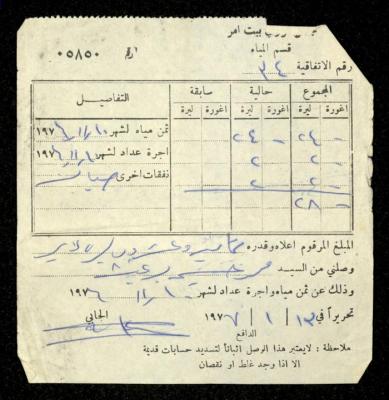 بيت امر
قسم المياه
٠٥٨٥٠
رقم الاتفاقية ٣٤
التفاصيل سابقة حالية المجموع
اغورة ليرة اغورة ليرة اغورة ليرة
ثمن مياه لشهر ١٠/١١/١٩٧٦ ٢٤ - ٢٤ -
اجرة عداد لشهر ١٠/١١/١٩٧٦ ٢ ٢ -
نفقات اخرى صيانة ٢ ٢ -
٢٨ -
المبلغ المرقوم اعلاه وقدره ثمانية وعشرون ليرة
وصلني من السيد
وذلك عن ثمن مياه واجرة عداد لشهر ١٠/١١/١٩٧٦
تحريراً في ١٣/١/١٩٧٧ الجابي
الدافع
ملاحظة : لا يعتبر هذا الوصل اثباتاً لتسديد حسابات قديمة
الا اذا وجد غلط او نقصان